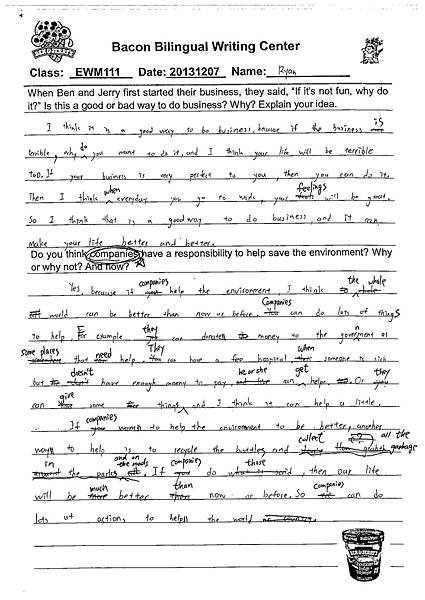 Bacon Bilingual Writing Center
Class: EWM111 Date: 20131207 Name: Ryan
When Ben and Jerry first started their business, they said, "If it's not fun, why do
it?" Is this a good or bad way to do business? Why? Explain your idea.
I think it is a good way to do business, because if the business is
terrible, why do you want to do it, and I think your life will be terrible
too. If your business is very perfect to you, then you can do it.
Then I think when everyday you go to work, your feelings will be great.
So I think that is a good way to do business, and it can
make your life better and better.
Do you think companies have a responsibility to help save the environment? Why
or why not? And how?
Yes, because if companies help the environment, I think the whole
world can be better than now or before. Companies can do lots of things
to help. For example they can donate money to the government or
some places that need help. They can have a hospital when someone is sick
but doesn't have enough money to pay, he or she can get help. Or they
can give some things and I think it can help a little.
If companies want to help the environment to be better, another
way to help is to recycle the bottles and collect all the garbage
in the parks and on the roads. If companies do those, then our life
will be much better than now or before. So companies can do
lots of actions to help the world